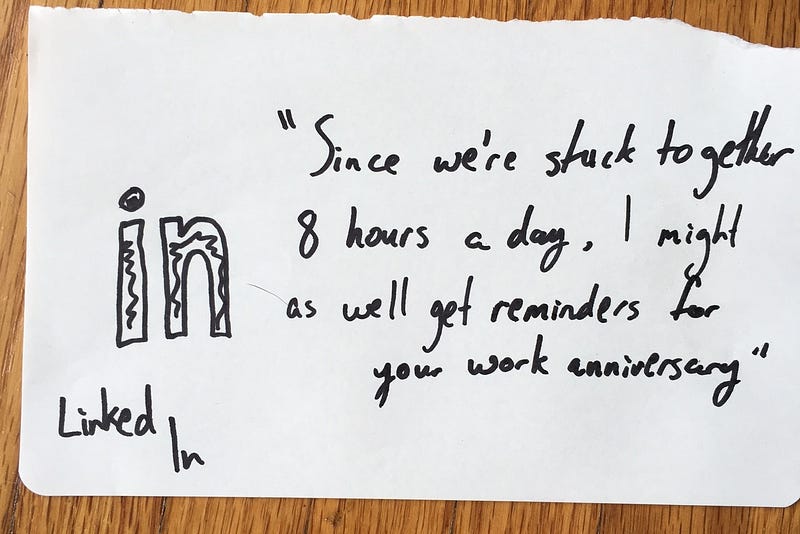 "Since we're stuck together
8 hours a day, I might
as well get reminders for
your work anniversary"
in
Linked
In